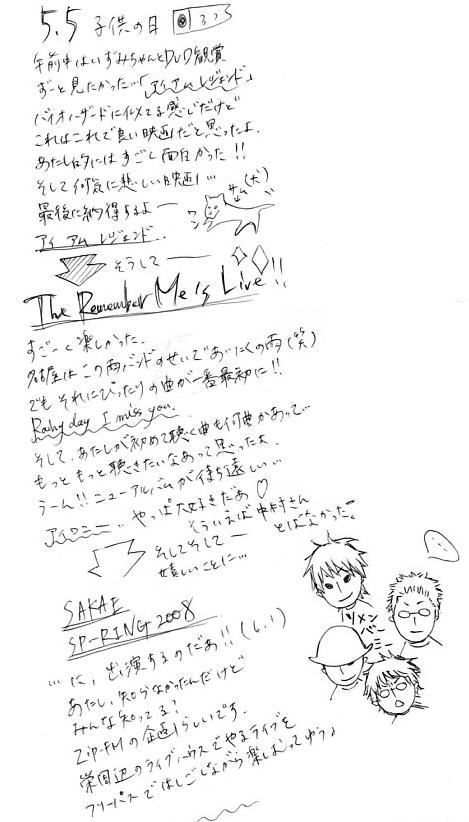 5.5 子供の日
午前中はいずみちゃんとDVD観賞
ずーと見たかった…「アイアムレジェンド」
バイオハザードに似てる感じだけど
これはこれで良い映画だと思ったよ.
あたし的にはすごく面白かった!!
そして何気に悲しい映画…
最後に納得するよー
サム(犬)
ワン
アイ アム レジェンド..
そうして ―
The Remember Me's Live!!
すごーく楽しかった.
名古屋はこの雨バンドのせいであいにくの雨(笑)
でも それにぴったりの曲が一番最初に!!
Rainy day I miss you.
そして、あたしが初めて聴く曲も何曲かあって…
もっともっと聴きたいなあって思ったよ.
うーん!!ニューアルバムが待ち遠しい…
やっぱ大好きだあ♡
そういえば中村さん
とばなかった?
そしてそして ―
嬉しいことに…
SAKAE
SP-RING 2008
…に、出演するのだぁ!!(6.1)
あたし、知らなかったんだけど
みんな知ってる?
Zip-FMの企画らしいです.
栄周辺のライブハウスでやるライブを
フリーパスではしごしながら楽しむってゆう♪